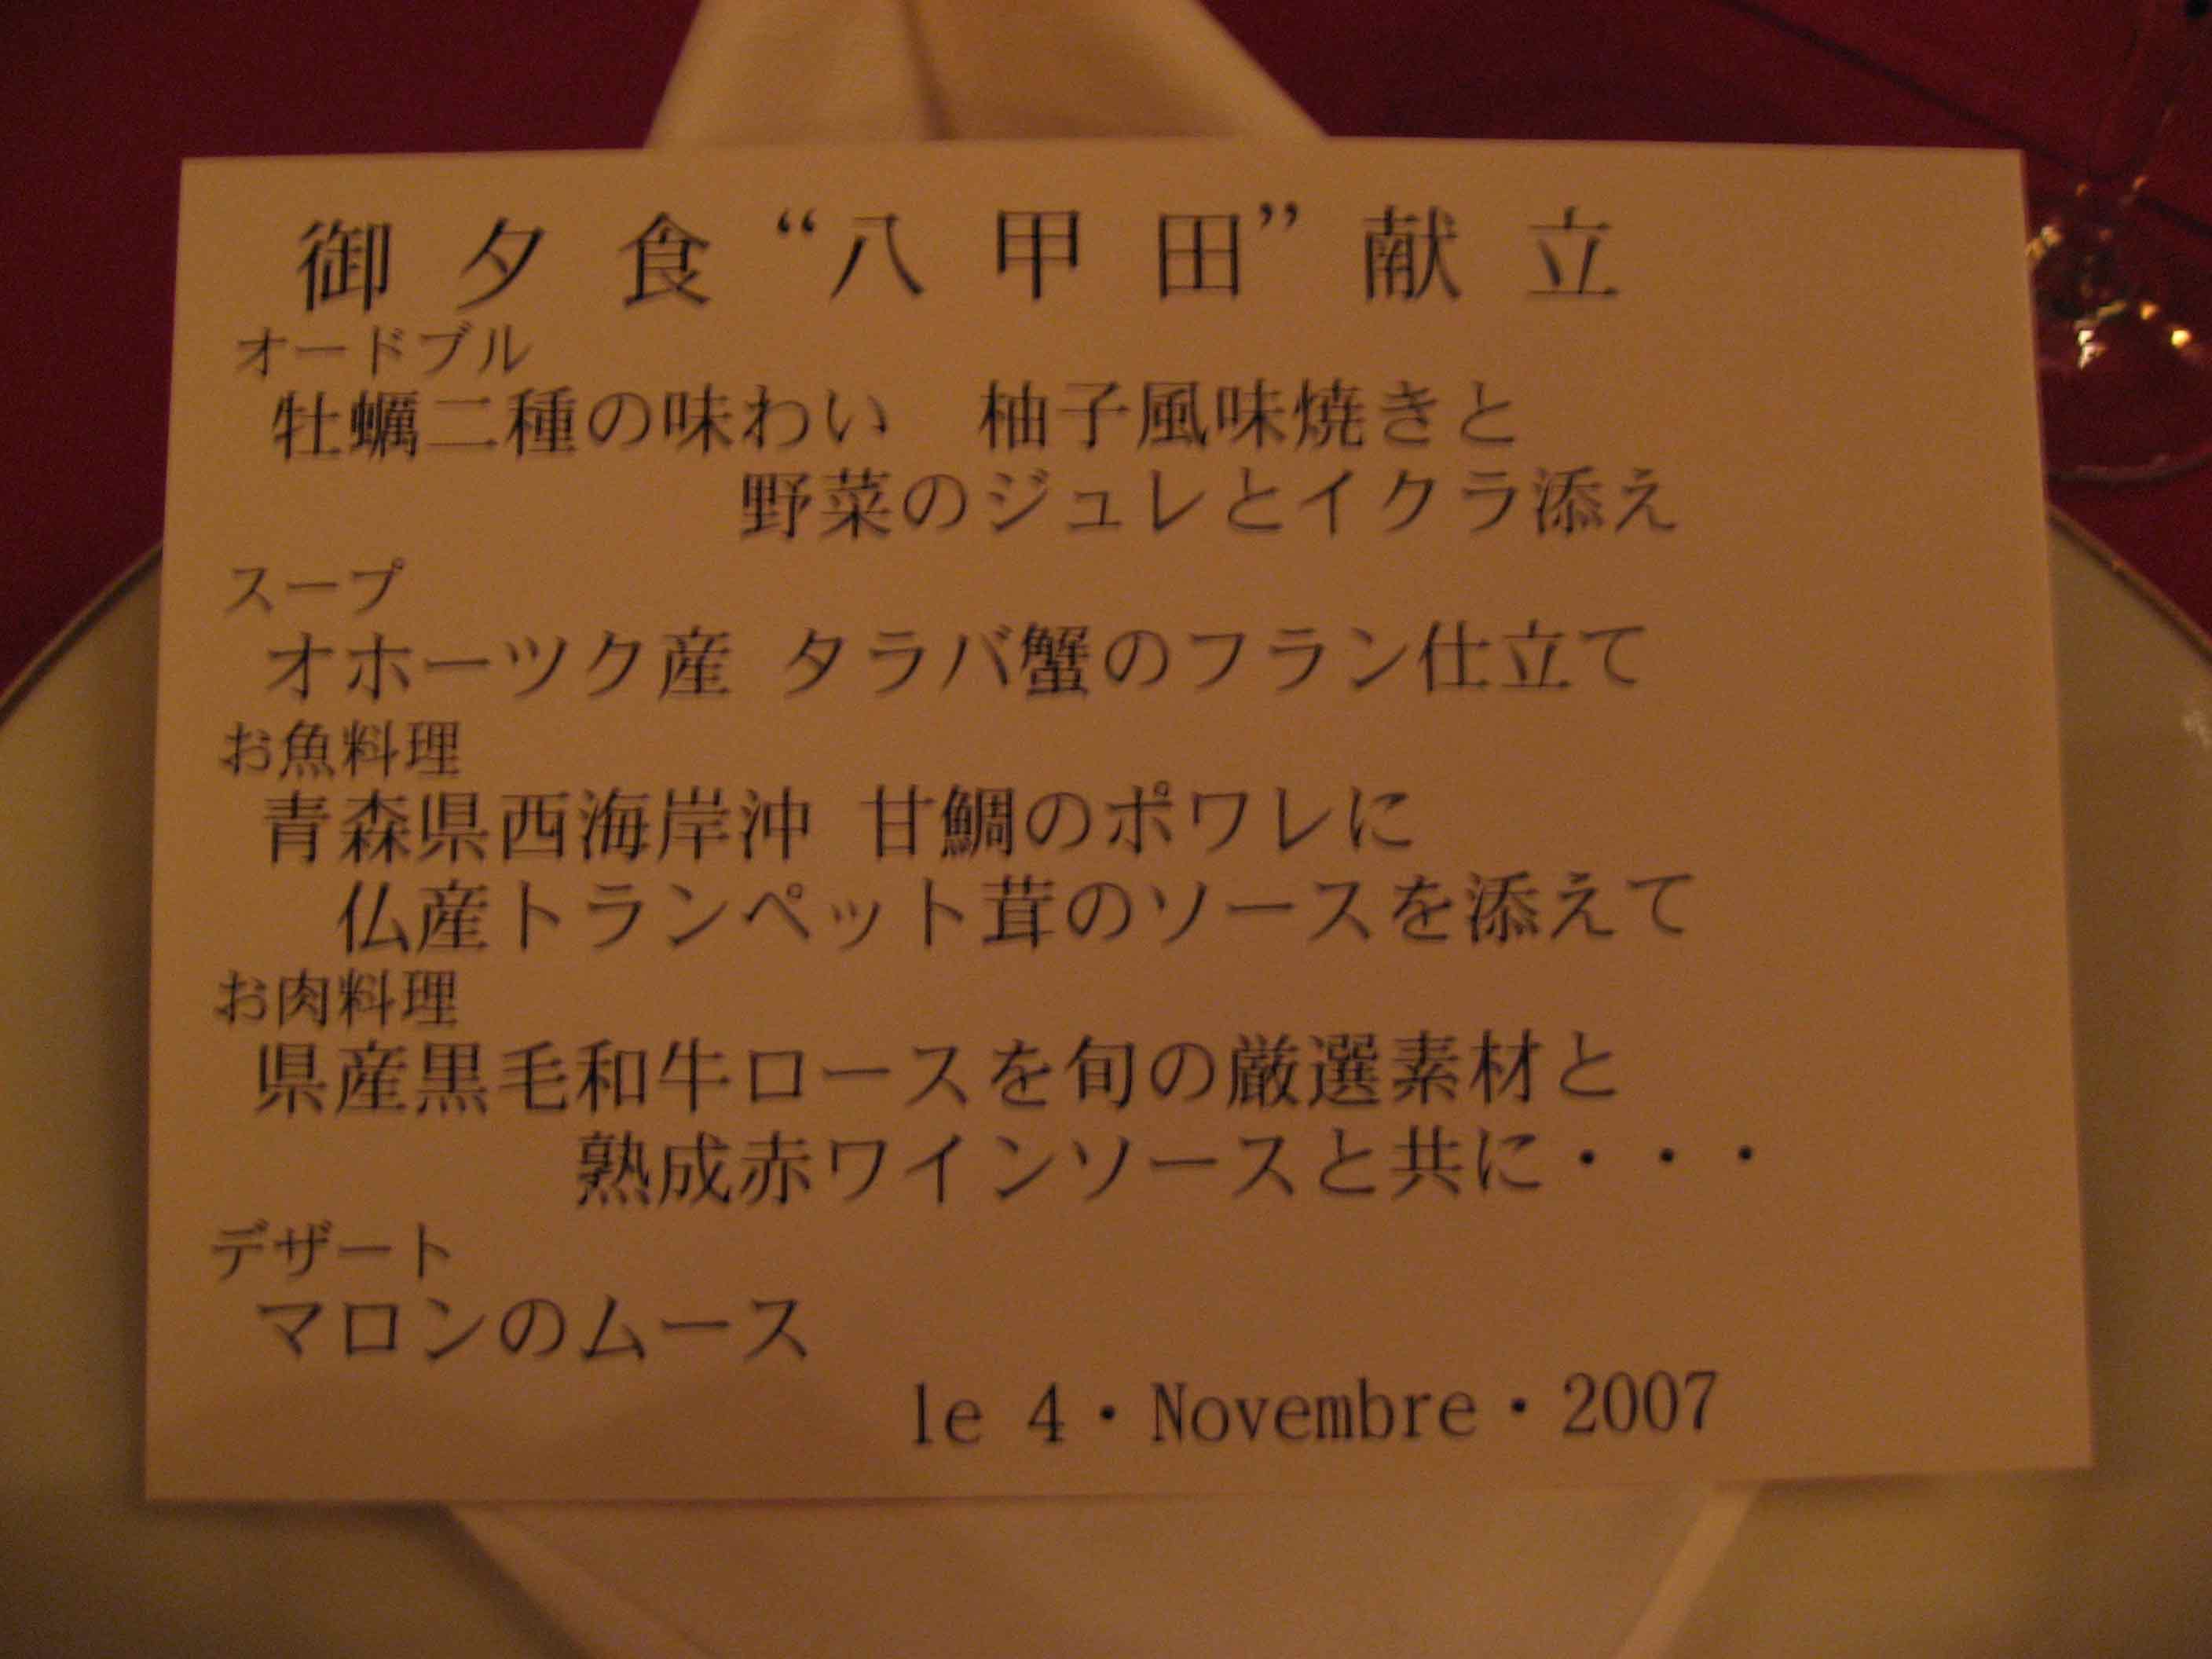 御夕食“八甲田”献立
オードブル
牡蠣二種の味わい　柚子風味焼きと
野菜のジュレとイクラ添え
スープ
オホーツク産 タラバ蟹のフラン仕立て
お魚料理
青森県西海岸沖 甘鯛のポワレに
仏産トランペット茸のソースを添えて
お肉料理
県産黒毛和牛ロースを旬の厳選素材と
熟成赤ワインソースと共に・・・
デザート
マロンのムース
le 4・Novembre・2007